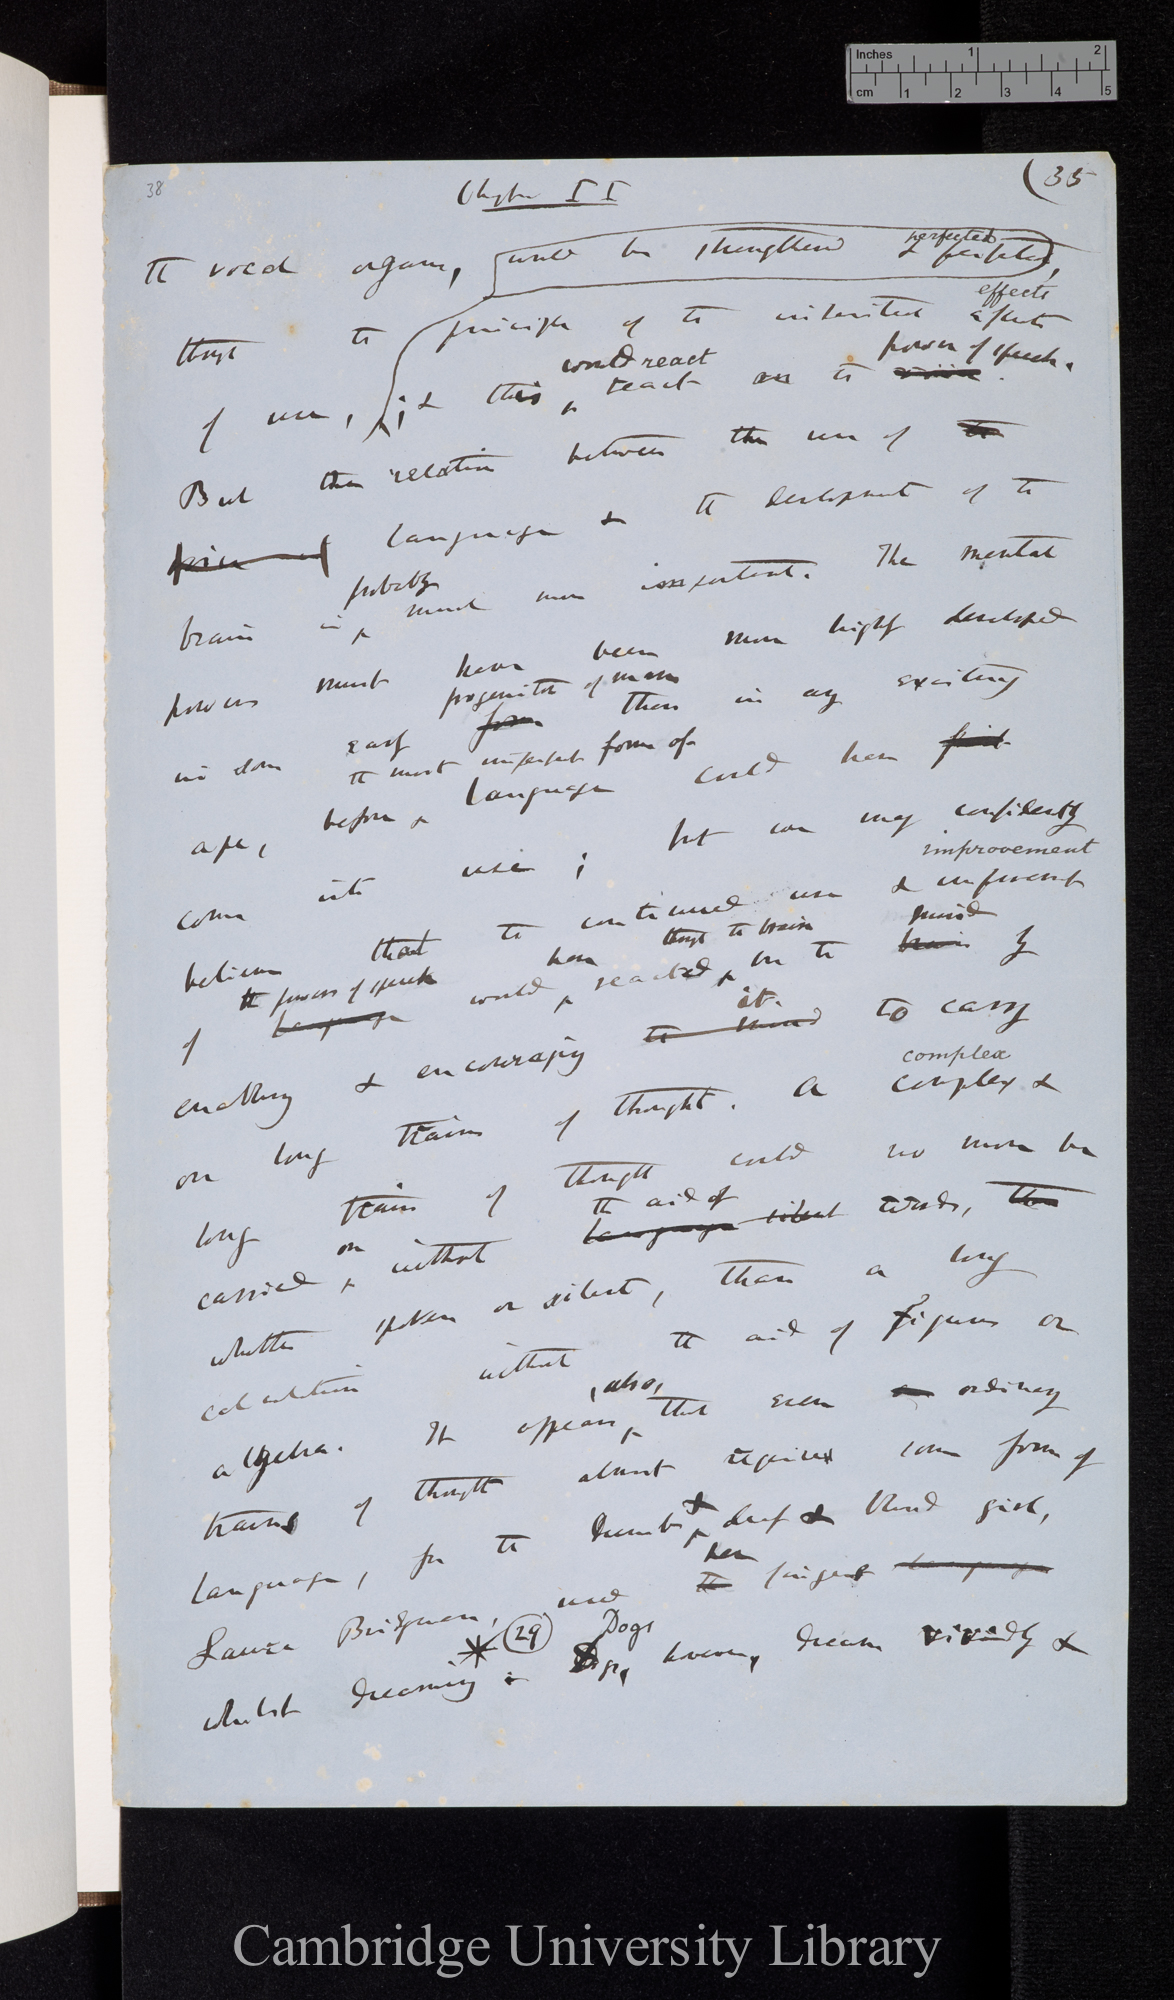 Inches 1 2
cm 1 2 3 4 5
38
Chapter II
(35
the vocal organs, would be strengthened & perfected,
perfected
through the principle of the inherited effects
effects
of use, ; & this would react on the power of speech.
But the relation between the use of the
language & the development of the
brain is probably much more important. The mental
powers must have been more highly developed
in some early progenitor of man form than in any existing
ape, before the most imperfect form of language could have first
come into use; but we may confidently
believe that the continued use & improvement
improvement
of the powers of speech language would have reacted through the brain, on the brain mind by
enabling & encouraging the mind it. to carry
on long trains of thought. A complex &
complex
long train of thought could no more be
carried on without the aid of language silent words, the
whether spoken or silent, than a long
calculation without the aid of figures or
algebra. It appears, also, that even a ordinary
trains of thought almost requires some form of
language, for the dumb & deaf & blind girl,
Laura Bridgman, used the her fingers language
whilst dreaming * 29 Dogs, Dogs however, dream vividly &
Cambridge University Library